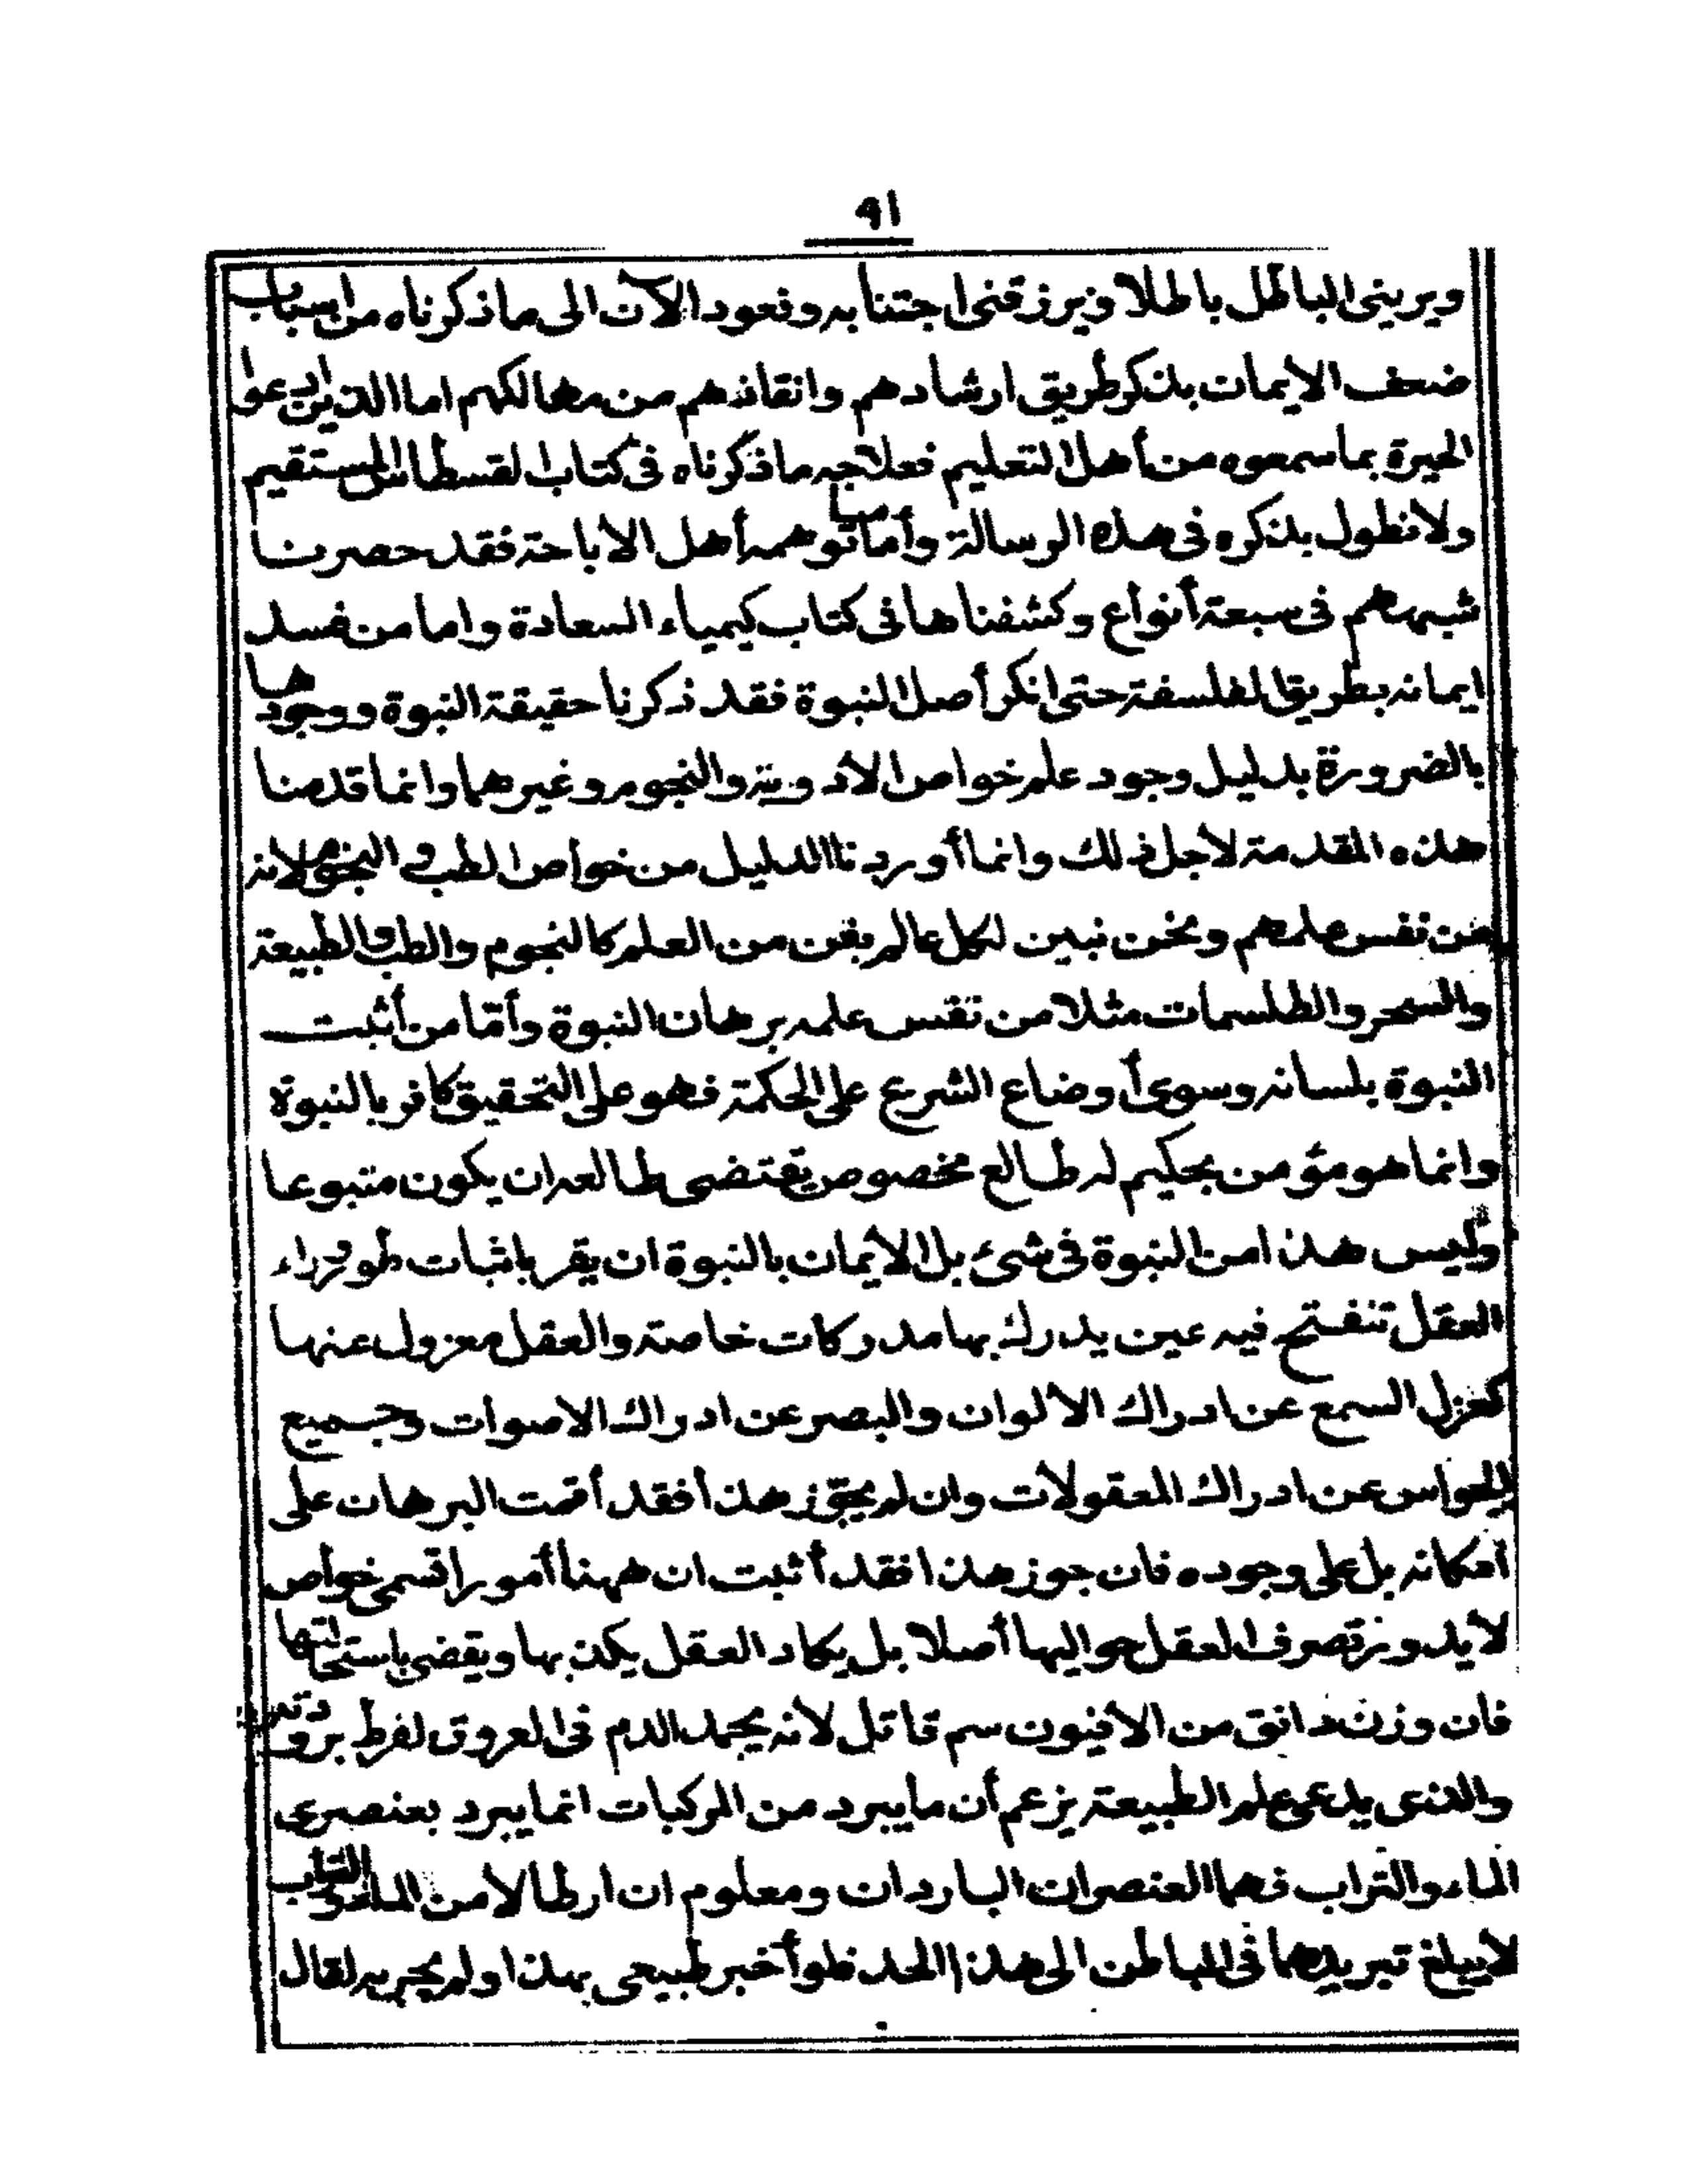 ٤١
ويريني الباطل باطلا ويرزقني اجتنابه ونعود الآن الى ما ذكرناه من اسباب
ضعف الايمان بذكر طريق ارشادهم وانقاذهم من مهالكهم اما الذين ادعوا
الحيرة بما سمعوه من أهل التعليم فعلاجه ما ذكرناه فى كتاب القسطاس المستقيم
ولا نطول بذكره فى هذه الرسالة وأما ما توهمه أهل الاباحة فقد حصرنا
شبههم فى سبعة أنواع وكشفناها فى كتاب كيمياء السعادة واما من فسد
ايمانه بطريق الفلسفة حتى انكر أصل النبوة فقد ذكرنا حقيقة النبوة ووجودها
بالضرورة بدليل وجود علم خواص الأدوية والنجوم وغيرهما وانما قدمنا
هذه المقدمة لأجل ذلك وانما أوردنا الدليل من خواص الطب و النجوم لانه
من نفس علمهم ونحن نبين لكل عالم بفن من العلم كالنجوم والطب والطبيعة
والسحر والطلسمات مثلا من نفس علمه برهان النبوة وأمّا من أثبت
النبوة بلسانه وسوى أوضاع الشرع على الحكمة فهو على التحقيق كافر بالنبوة
وانما هو مؤمن بحكيم له طالع مخصوص يقتضى طالعه ان يكون متبوعا
وليس هذا من النبوة فى شئ بل الأيمان بالنبوة ان يقر باثبات طور وراء
العقل تنفتح فيه عين يدرك بها مدركات خاصة والعقل معزول عنها
كعزل السمع عن ادراك الألوان والبصر عن ادراك الاصوات وجميع
الحواس عن ادراك المعقولات وان لم يجوّز هذا فقد أقمت البرهان على
امكانه بل على وجوده فان جوز هذا فقد أثبت ان ههنا أمورا تسمى خواص
لا يدور تصرف العقل حواليها أصلا بل يكاد العقل يكذبها ويقضى باستحالتها
فان وزن دانق من الافيون سم قاتل لأنه يجمد الدم فى العروق لفرط برودته
والذى يدعى علم الطبيعة يزعم أن ما يبرد من المركبات انما يبرد بعنصرى
الماء والتراب فهما العنصران الباردان ومعلوم ان ارطالا من الماء والتراب
لا يبلغ تبريدها فى الباطن الى هذا الحد فلو أخبر طبيعى بهذا ولم يجربه لقال